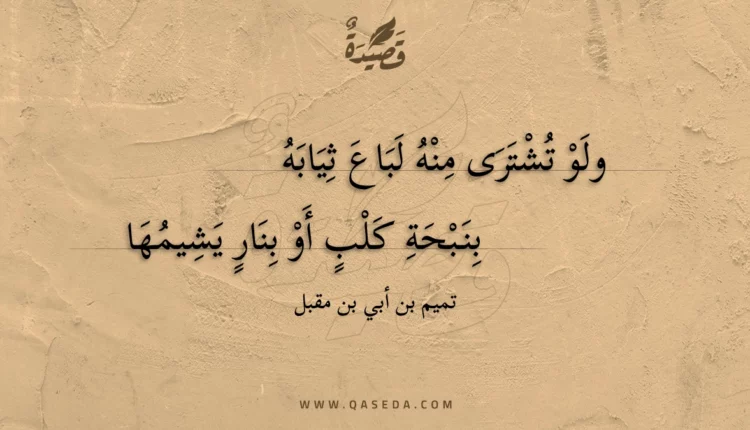 قَصِيْدَةٌ
ولَوْ تُشْتَرَى مِنْهُ لَبَاعَ ثِيَابَهُ
بِنَبْحَةِ كَلْبٍ أَوْ بِنَارٍ يَشِيمُهَا
تميم بن أبي بن مقبل
WWW.QASEDA.COM